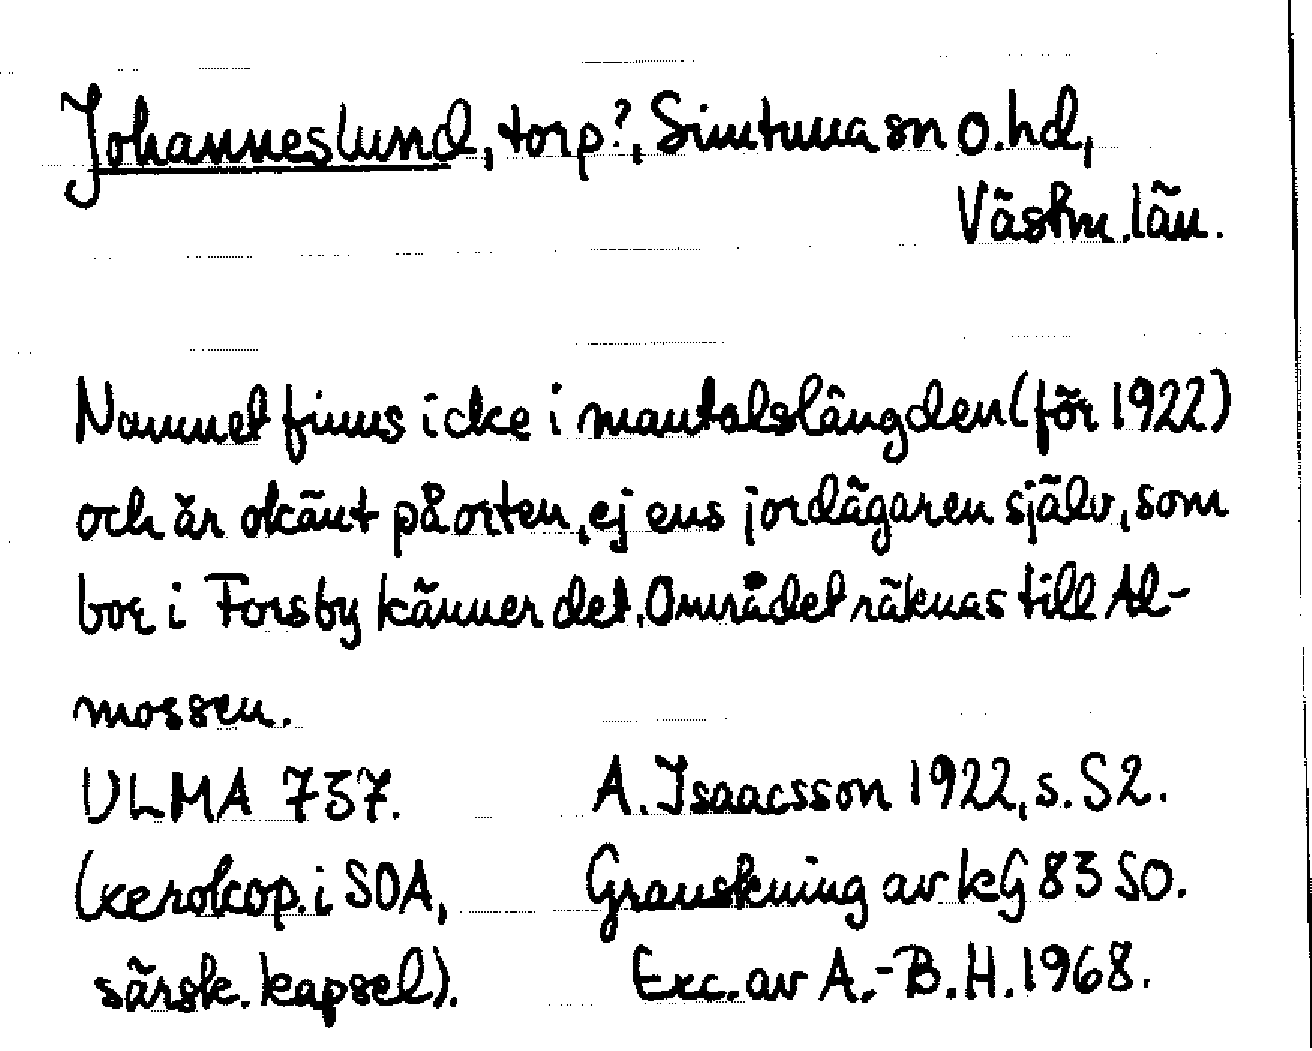 Johanneslund, torp?, Simtuna sn o. hd,
Västm. län.
Namnet finns icke i mantalslängden (för 1922)
och är okänt på orten, ej ens jordägaren själv, som
bor i Forsby känner det. Området räknas till Al-
mossen.
ULMA 737. A. Isaacsson 1922, s. 52.
(xerokop. i SOA, Granskning av kG 83 SO.
särsk. kapsel). Exc. av A.-B. H. 1968.